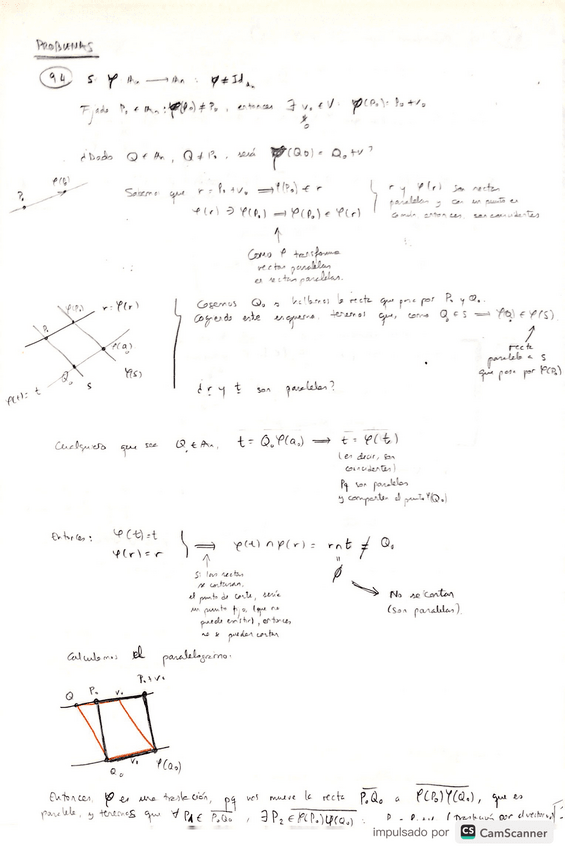 PROBLEMAS
94 Si φ An → An : φ ≠ Id An
Fijado P₀ ∈ An : φ(P₀) ≠ P₀, entonces ∃ v₀ ∈ V : φ(P₀) = P₀ + v₀
≠ 0
¿Dado Q ∈ An, Q ≠ P₀, será φ(Q₀) = Q₀ + v?
P₀ φ(P₀)
Sabemos que r = P₀ + v₀ ⟹ φ(P₀) ∈ r
φ(r) ∋ φ(P₀) ⟹ φ(P₀) ∈ φ(r)
r y φ(r) son rectas
paralelas y con un punto en
común entonces, son coincidentes
Como φ transforma
rectas paralelas
en rectas paralelas.
P₀ φ(P₀) r = φ(r)
φ(Q₀)
φ(t) = t Q₀ s φ(s)
Cogemos Q₀ y hallamos la recta que pasa por P₀ y Q₀.
Cogiendo este esquema, tenemos que, como Q₀ ∈ s ⟹ φ(Q₀) ∈ φ(s)
recta
paralela a s
que pasa por φ(P₀)
¿r y t son paralelas?
Cualquiera que sea Q₀ ∈ An, t = Q₀ φ(Q₀) ⟹ t = φ(t)
(es decir, son
coincidentes)
Pq son paralelas
y comparten el punto φ(Q₀)
Entonces: φ(t) = t
φ(r) = r
⟹ φ(t) ∩ φ(r) = r ∩ t ≠ Q₀
=
∅
No se cortan
(son paralelas).
Si las rectas
se cortaran,
el punto de corte, sería
un punto fijo (que no
puede existir), entonces
no se pueden cortar
Calculamos el paralelogramo:
Q P₀ v₀ P₀ + v₀
Q₀ v₀ φ(Q₀)
Entonces, φ es una traslación, pq nos mueve la recta P₀Q₀ a φ(P₀)φ(Q₀), que es
paralela, y tenemos que ∀ P₁ ∈ P₀Q₀, ∃ P₂ ∈ φ(P₀)φ(Q₀)
impulsado por CS CamScanner